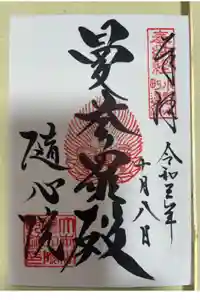 奉拝
令和三年
十月八日
曼荼羅殿
隨心院